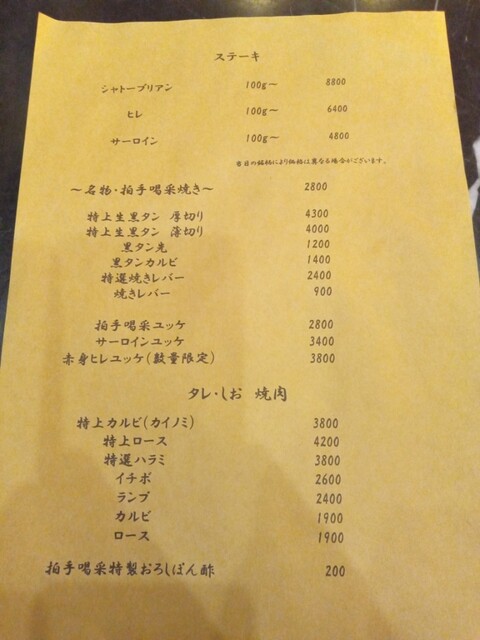 ステーキ
シャトーブリアン 100g～ 8800
ヒレ 100g～ 6400
サーロイン 100g～ 4800
当日の銘柄により価格は異なる場合がございます。
～名物・拍手喝采焼き～ 2800
特上生黒タン 厚切り 4300
特上生黒タン 薄切り 4000
黒タン先 1200
黒タンカルビ 1400
特選焼きレバー 2400
焼きレバー 900
拍手喝采ユッケ 2800
サーロインユッケ 3400
赤身ヒレユッケ(数量限定) 3800
タレ・しお 焼肉
特上カルビ(カイノミ) 3800
特上ロース 4200
特選ハラミ 3800
イチボ 2600
ランプ 2400
カルビ 1900
ロース 1900
拍手喝采特製おろしぽん酢 200